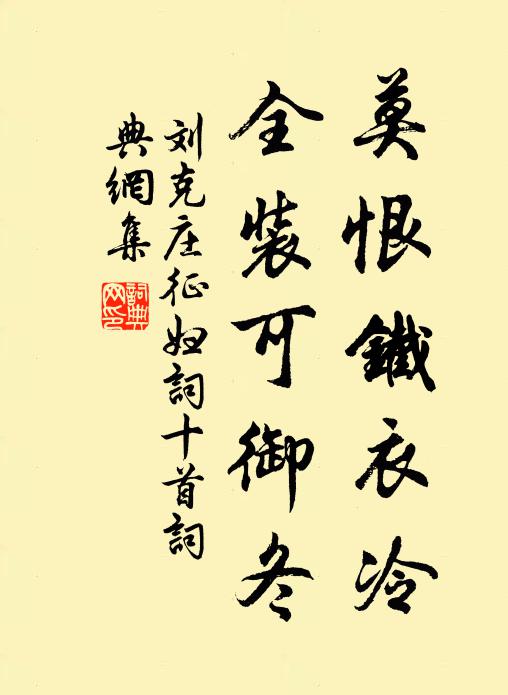 莫恨鐵衣冷
全裝可御冬
刘克庄征妇詞十首詞
典網集
詞典网印